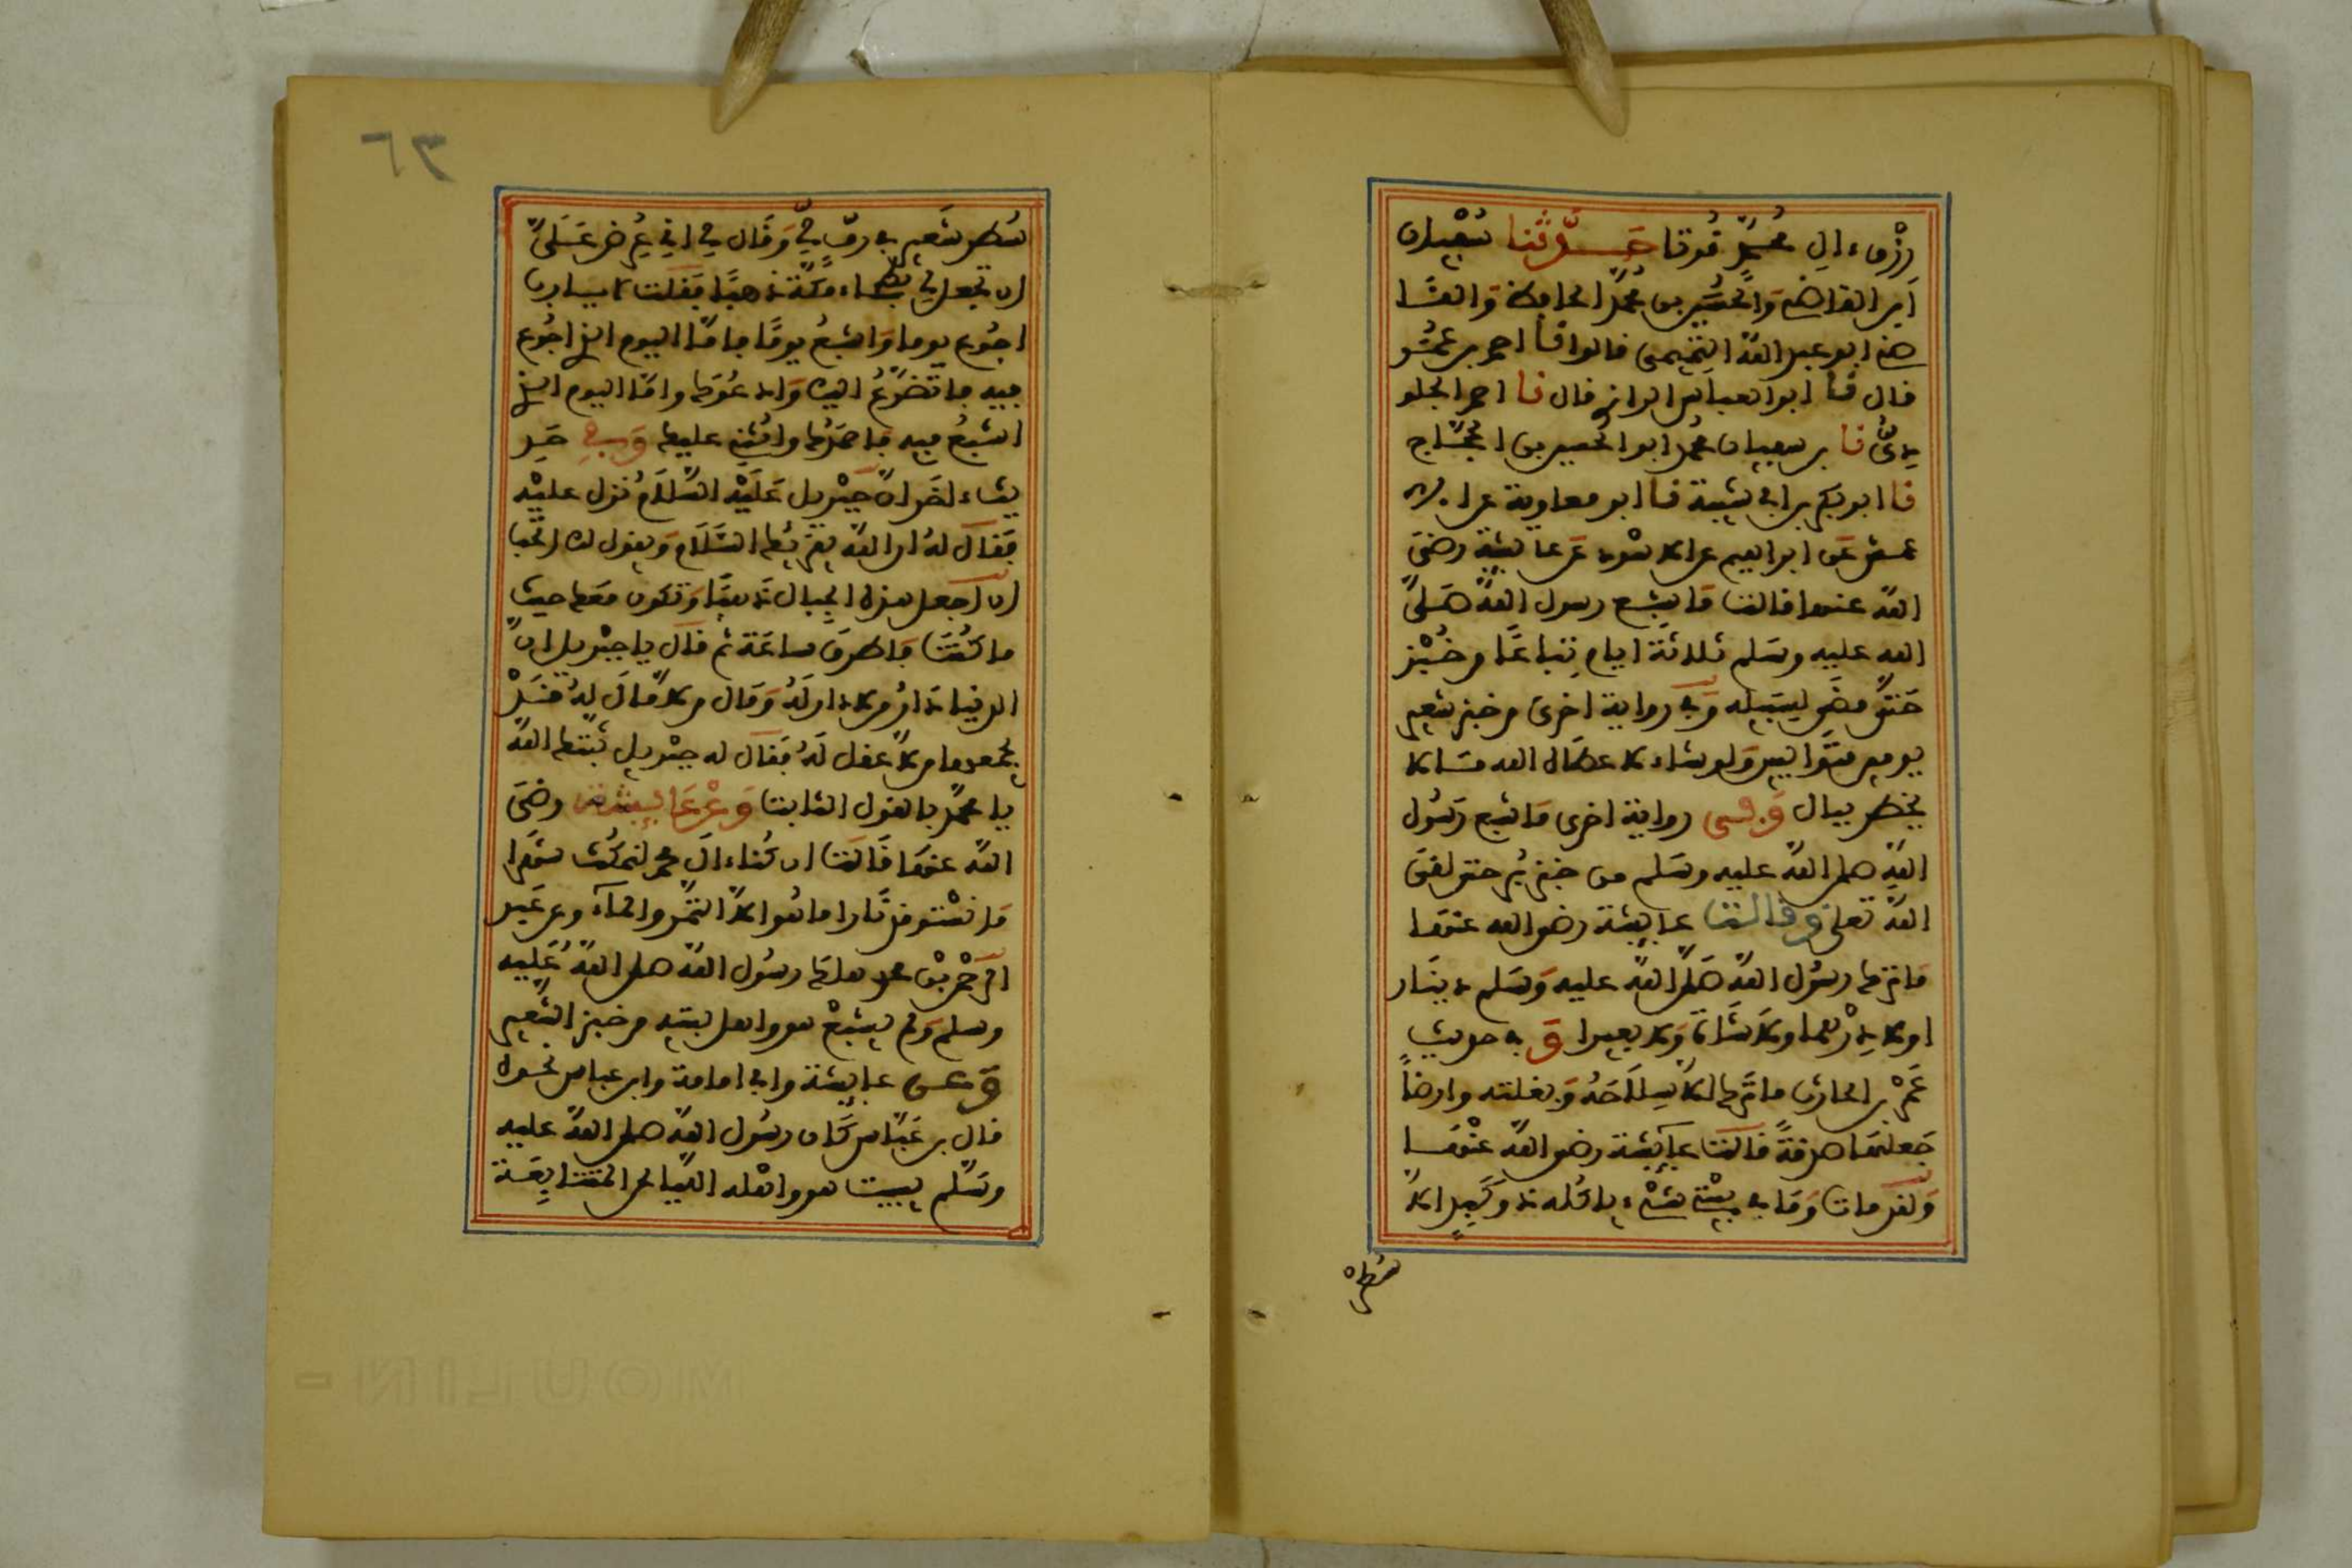 رزق ءال محمد قوتا حدثنا سفيان
ابن القاضي والحسين بن محمد الحافظ والقا
ضي ابو عبد الله التميمي قالوا نا احمد بن عمر
قال نا ابو العباس الرازي قال نا احمد الجلو
دي نا بن سفيان محمد ابو الحسين بن الحجاج
نا ابو بكر بن ابي شيبة نا ابو معاوية عن الا
عمش عن ابراهيم عن الاسود عن عايشة رضي
الله عنها قالت ما شبع رسول الله صلى
الله عليه وسلم ثلاثة ايام تباعا من خبز
حتى مضى لسبيله وفي رواية اخرى من خبز شعير
يومين متواليين ولو شاء لاعطاه الله ما لا
يخطر ببال وفي رواية اخرى ما شبع رسول
الله صلى الله عليه وسلم من خبز بر حتى لقي
الله تعلى وقالت عايشة رضي الله عنها
ما ترك رسول الله صلى الله عليه وسلم دينار
اولا درهما ولا شاة ولا بعيرا وفي حديث
عمر بن الحارث ما ترك الا سلاحه وبغلته وارضا
جعلها صدقة قالت عايشة رضي الله عنها
ولقد مات وما في بيتي شيء ياكله ذو كبد الا
شطر
٦٣
شطر شعير في رف لي وقال لي اني عرض علي
ان تجعل لي بطحاء مكة ذهبا فقلت لا يا رب
اجوع يوما واشبع يوما فاما اليوم الذي اجوع
فيه فاتضرع اليك وادعوك واما اليوم الذي
اشبع فيه فاحمدك واثني عليك وفي حد
يث ءاخر ان جبريل عليه السلام نزل عليه
فقال له ان الله يقريك السلام ويقول لك اتحب
ان اجعل هذه الجبال ذهبا وتكون معك حيث
ما كنت فاطرق ساعة ثم قال يا جبريل ان
الدنيا دار من لا دار له ومال من لا مال له قد
يجمعها من لا عقل له فقال له جبريل ثبتك الله
يا محمد بالقول الثابت وعن عايشة رضي
الله عنها قالت ان كنا ءال محمد لنمكث شهرا
ما نستوقد نارا ما هوا الا التمر والماء وعن عبد
الرحمن بن عوف هلك رسول الله صلى الله عليه
وسلم ولم يشبع هو واهل بيته من خبز الشعير
وعن عايشة وابي امامة وابن عباس نحوه
قال بن عباس كان رسول الله صلى الله عليه
وسلم يبيت هو واهله الليالي المتتابعة
MOULIN -